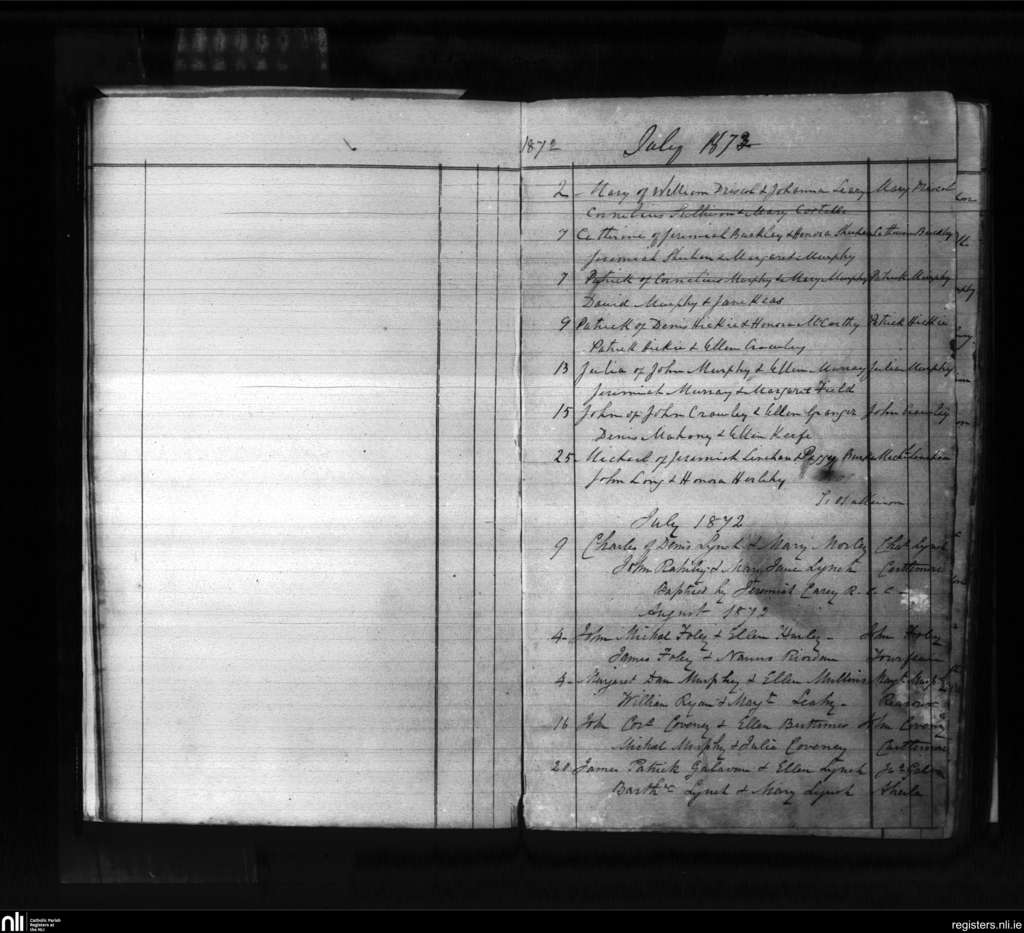 1872 July 1872
2 Mary of William Driscol & Johanna Leary Mary Driscol
Cornelius Sullivan & Mary Costello
7 Catherine of Jeremiah Buckley & Honora Catherine Buckley
Jeremiah & Margaret Murphy
7 Patrick of Cornelius Murphy & Mary Murphy Patrick Murphy
David Murphy & Jane Keas
9 Patrick of Denis Hickie & Honora McCarthy Patrick Hickie
Patrick Hickie & Ellen Crowley
13 Julia of John Murphy & Ellen Murray Julia Murphy
Jeremiah Murray & Margaret Field
15 John of John Crowley & Ellen Granger John Crowley
Denis Mahony & Ellen Keefe
25 Michael of Jeremiah Linehan & Peggy Burke Michl Linehan
John Long & Honora Herlihy
July 1872
9 Charles of Denis Lynch & Mary Morley Chas Lynch
John & Mary Jane Lynch
Baptised by Jeremiah Carey R. C. C.
August 1872
4 John Michal Foley & Ellen Hurley John Foley
James Foley & Nanno Riordan
4 Margaret Dan Murphy & Ellen Mullins Margt Murphy
William Ryan & Margt Leahy
16 John Cors Coveney & Ellen Buttimer John Coveney
Michal Murphy & Julia Coveney
20 James Patrick Galavan & Ellen Lynch
Barthw Lynch & Mary Lynch
nli
Catholic Parish
Registers at
the NLI
registers.nli.ie